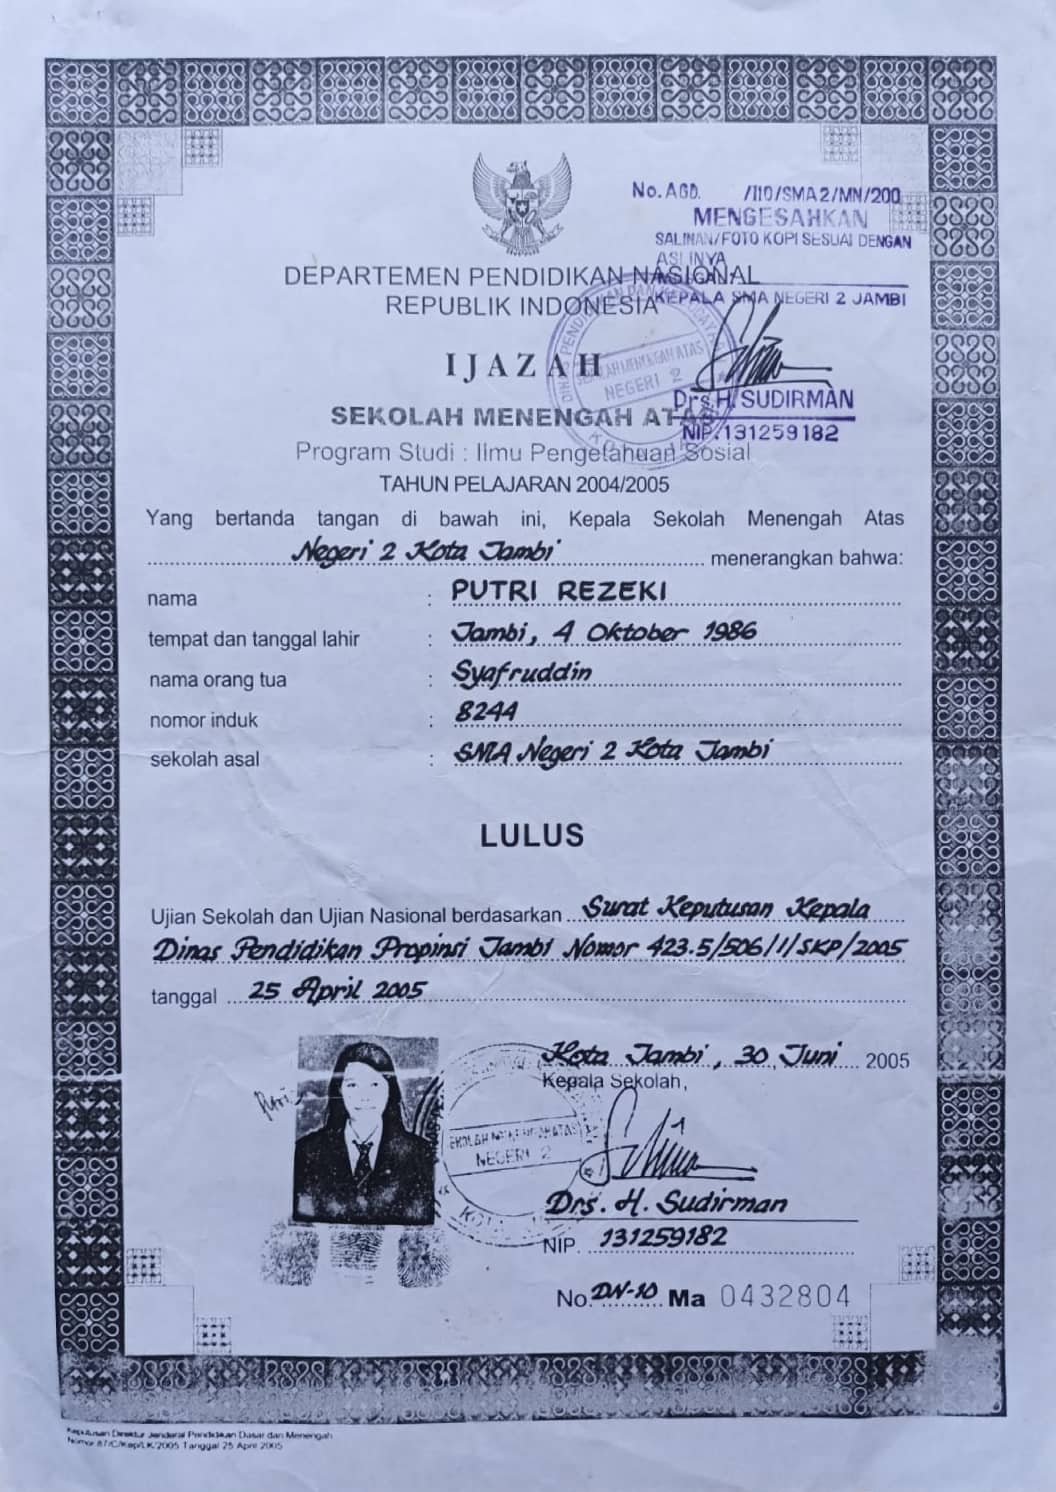 No. AGD. /110/SMA 2/MN/200
MENGESAHKAN
SALINAN/FOTO KOPI SESUAI DENGAN
ASLINYA
KEPALA SMA NEGERI 2 JAMBI
Drs. H. SUDIRMAN
NIP. 131259182
DEPARTEMEN PENDIDIKAN NASIONAL
REPUBLIK INDONESIA
IJAZAH
SEKOLAH MENENGAH ATAS
NEGERI 2
SEKOLAH MENENGAH ATAS
Program Studi : Ilmu Pengetahuan Sosial
TAHUN PELAJARAN 2004/2005
Yang bertanda tangan di bawah ini, Kepala Sekolah Menengah Atas
Negeri 2 Kota Jambi menerangkan bahwa:
nama : PUTRI REZEKI
tempat dan tanggal lahir : Jambi, 4 Oktober 1986
nama orang tua : Syafruddin
nomor induk : 8244
sekolah asal : SMA Negeri 2 Kota Jambi
LULUS
Ujian Sekolah dan Ujian Nasional berdasarkan Surat Keputusan Kepala
Dinas Pendidikan Propinsi Jambi Nomor 423.5/506/1/SKP/2005
tanggal 25 April 2005
Kota Jambi, 30 Juni 2005
Kepala Sekolah,
SEKOLAH MENENGAH ATAS
NEGERI 2
Drs. H. Sudirman
NIP. 131259182
No. DN-10 Ma 0432804
Keputusan Direktur Jenderal Pendidikan Dasar dan Menengah
Nomor 87/C/Kep/LK/2005 Tanggal 25 April 2005